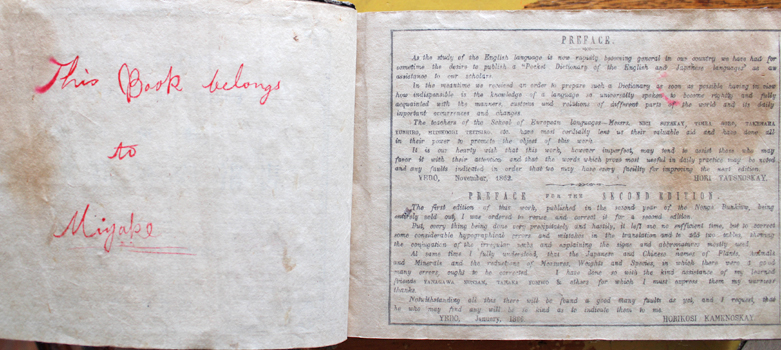 This Book belongs
to
Miyake
PREFACE.
As the study of the English language is now rapidly becoming general in our country we have had for
sometime the desire to publish a "Pocket Dictionary of the English and Japanese languages" as an
assistance to our scholars.
In the meantime we received an order to prepare such a Dictionary as soon as possible having in view
how indispensible is the knowledge of a language so universally spoken to become rightly and fully
acquainted with the manners, customs and relations of different parts of the world and its daily
important occurrences and changes.
The teachers of the School of European languages—Messrs.
have most cordially lent us their valuable aid and have done all
in their power to promote the object of this work.
It is our hearty wish that this work, however imperfect, may tend to assist those who may
favor it with their attention and that the words which prove most useful in daily practice may be noted
and any faults indicated in order that we may have every facility for improving the next edition.
YEDO, November, 1862. HORI TATSNOSKAY.
PREFACE FOR THE SECOND EDITION.
The first edition of this work, published in the second year of the Bunkiew, being
entirely sold out, I was ordered to revise and correct it for a second edition.
But, every thing being done very precipitately and hastily, it left me no sufficient time, but to correct
some considerable typographical errors and mistakes in the translation and to add two tables, showing
the conjugation of the irregular verbs and explaining the signs and abbreviations mostly used.
At same time I fully understand, that the Japanese and Chinese names of Plants, Animals
and Minerals and the reductions of Measures, Weights and Species, in which there were a good
many errors, ought to be corrected. I have done so with the kind assistance of my learned
friends & others for which I must express them my warmest
thanks.
Notwithstanding all this there will be found a good many faults as yet, and I request, that
he who may find any will be so kind as to indicate them to me.
YEDO, January, HORIKOSI KAMENOSKAY.